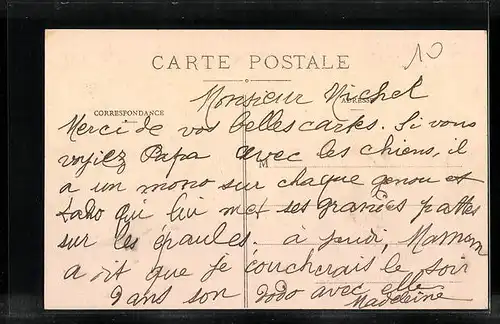 10
CARTE POSTALE
Monsieur Michel
CORRESPONDANCE
ADRESSE
Merci de vos belles cartes. Si vous
voyiez Papa avec les chiens, il
M
a un mono sur chaque genou et
qui lui met ses grandes pattes
sur les épaules. à jeudi, Maman
a dit que je coucherais le soir
dans son dodo avec elle
Madeleine